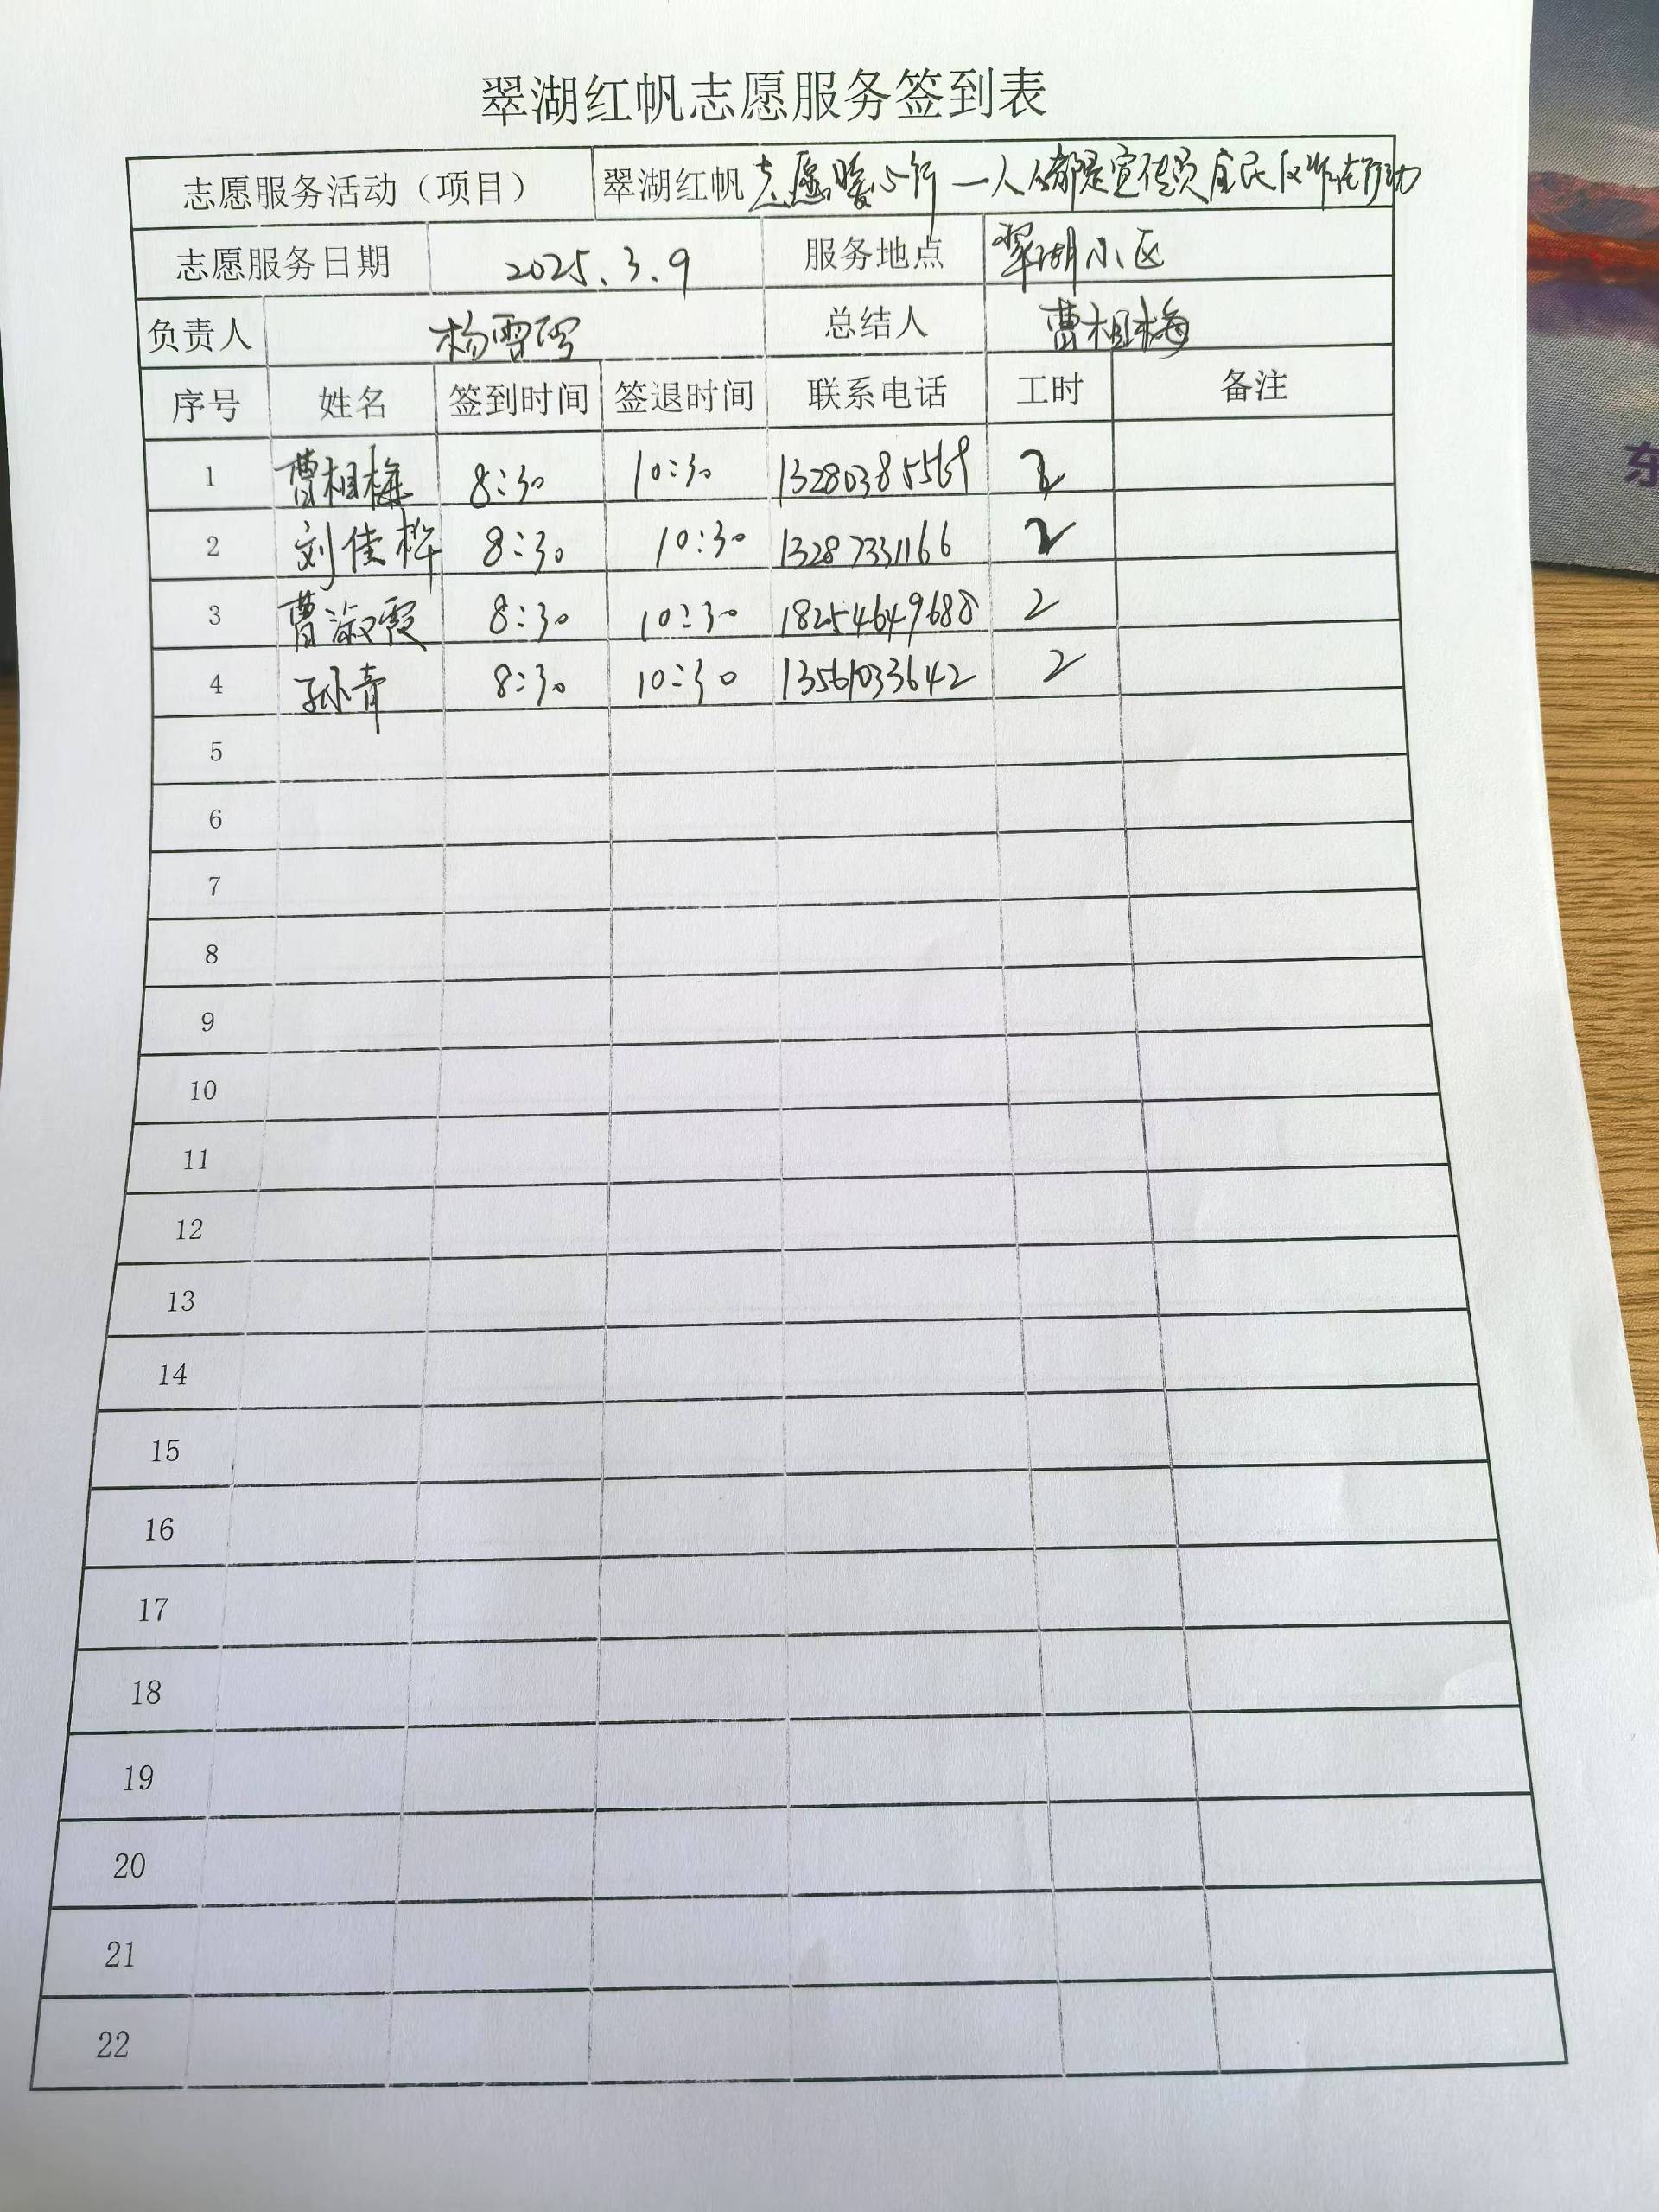 翠湖红帆志愿服务签到表
志愿服务活动（项目） 翠湖红帆志愿暖心行一人人都是宣传员全民反诈在行动
志愿服务日期 2025.3.9 服务地点 翠湖小区
负责人 杨雪 总结人 曹相梅
序号 姓名 签到时间 签退时间 联系电话 工时 备注
1 曹相梅 8:30 10:30 13280385569 2
2 刘佳桦 8:30 10:30 13287331166 2
3 曹淑霞 8:30 10:30 18254649688 2
4 孙青 8:30 10:30 13561033642 2
5
6
7
8
9
10
11
12
13
14
15
16
17
18
19
20
21
22
东